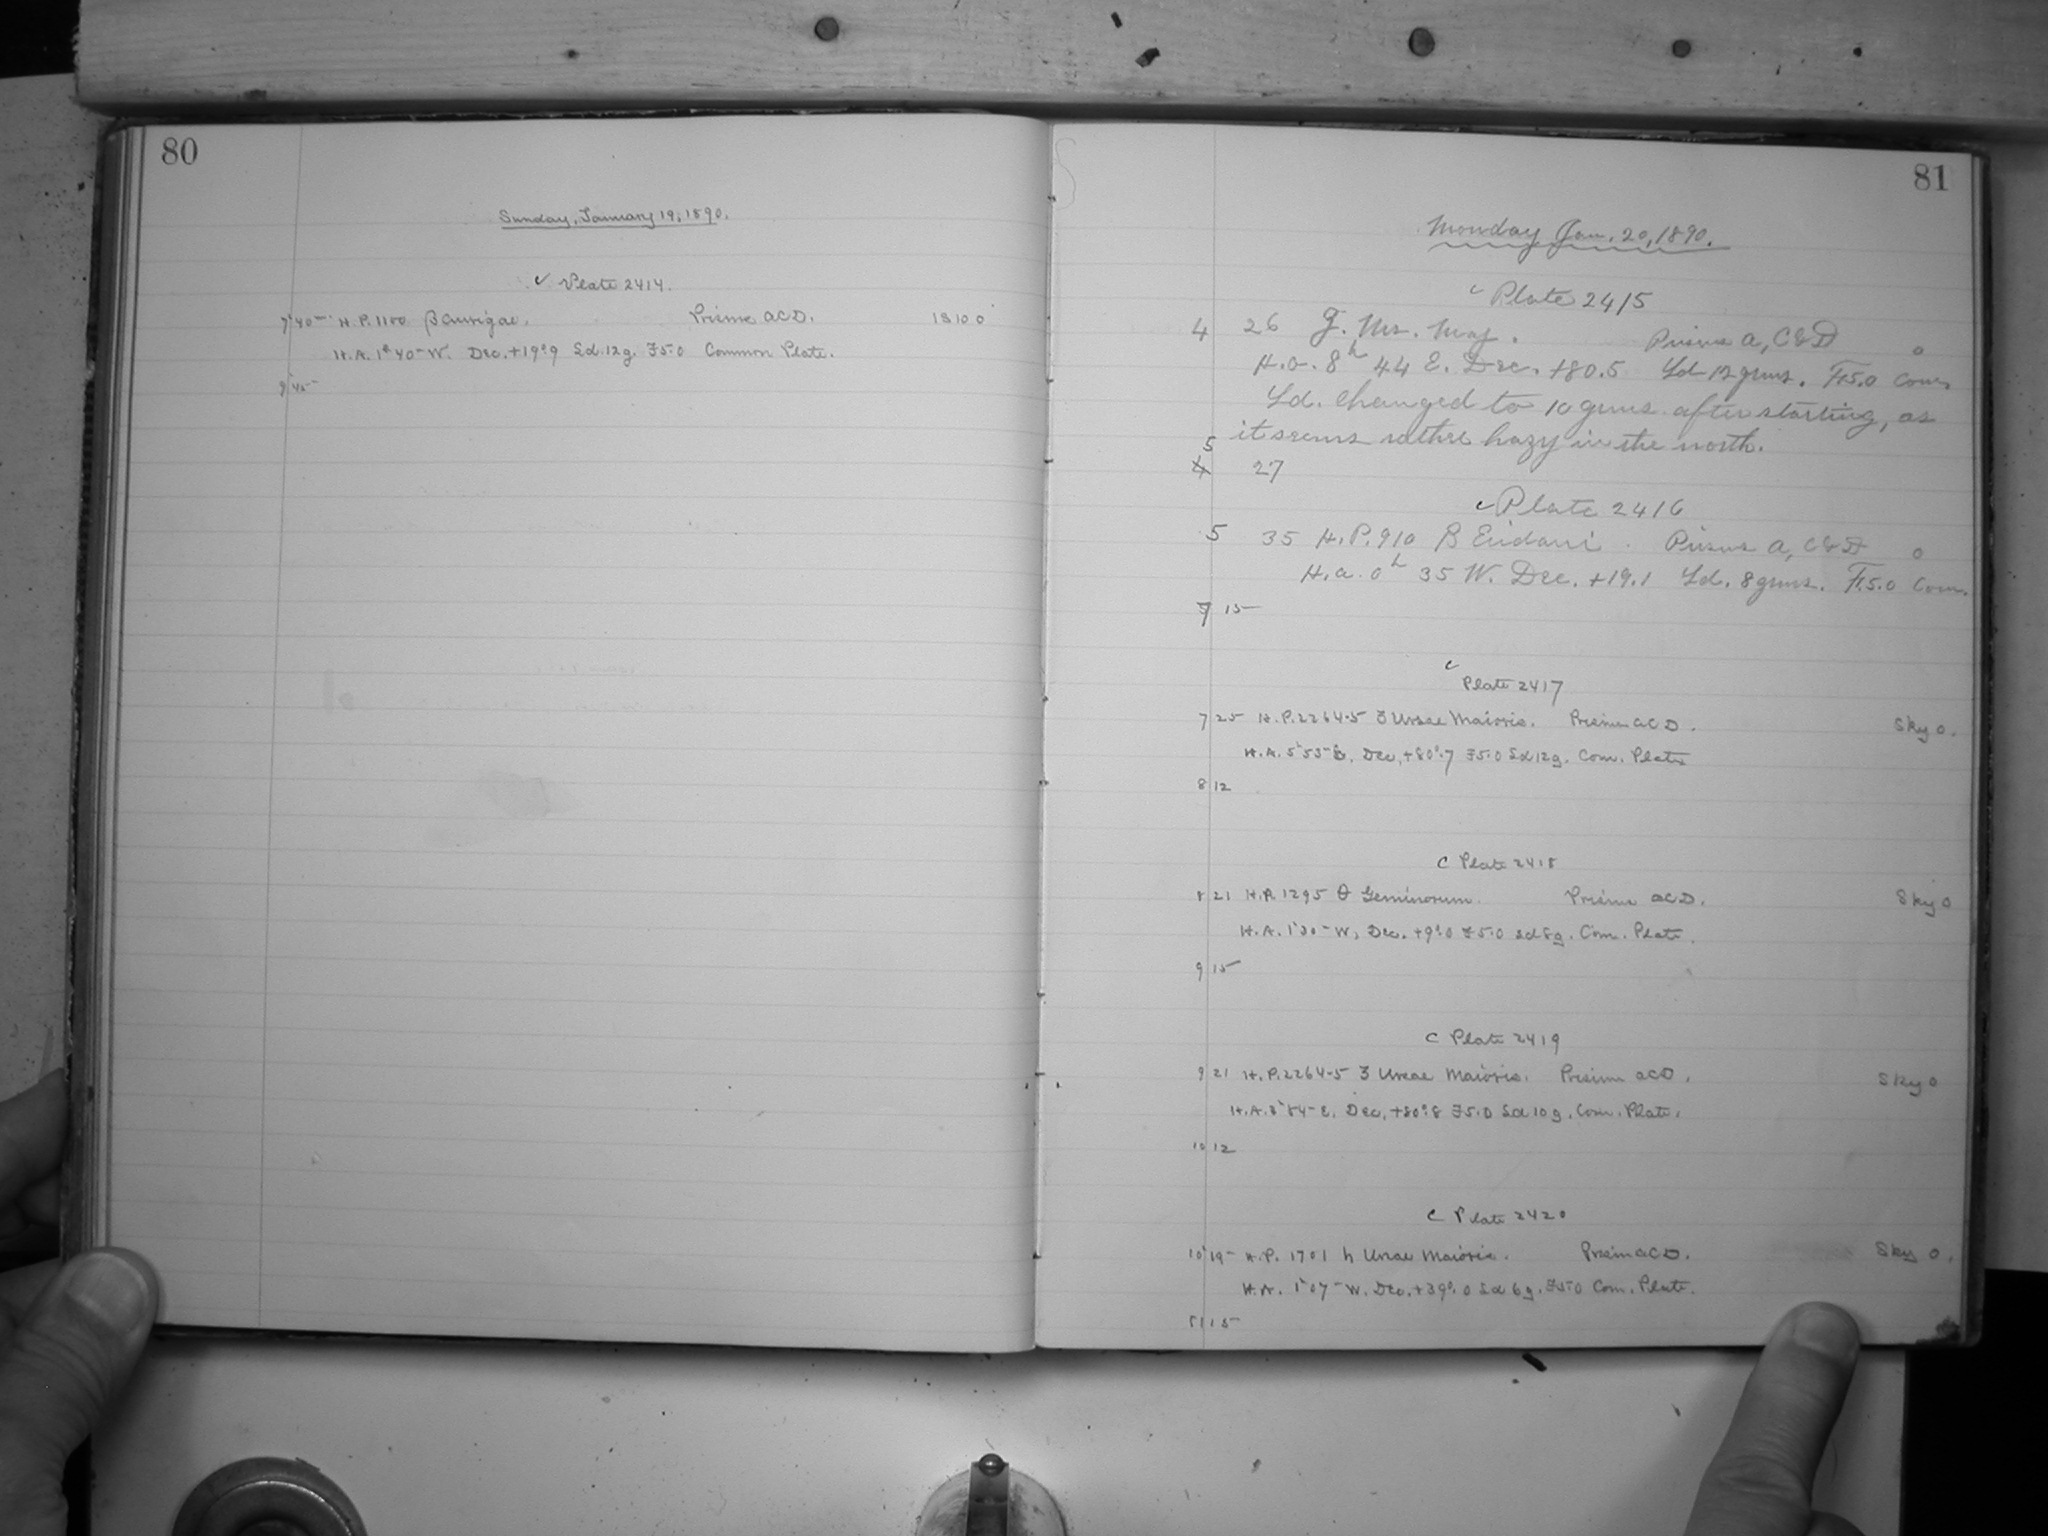 80
Sunday, January 19, 1890.
Plate 2414.
7 40 H.P. 1100 β Aurigae. Prisms ACD.
H.A. 1 40 W. Dec. +19°.9 Ld. 12g. F5.0 Common Plate.
81
Monday Jan. 20, 1890.
Plate 2415
4 26 Maj. Prisms A, C & D 0
H.a. 8h 44 E. Dec. +80.5 Ld 12 grms. F.5.0 Com
Ld. changed to 10 grms. after starting, as
it seems rather hazy in the north.
5 27
Plate 2416
5 35 H.P. 910 β Eridani. Prisms A, C & D 0
H.a. 0h 35 W. Dec. +19.1 Ld. 8 grms. F.5.0 Com.
7 15
Plate 2417
7 25 H.P. 2264-5 ζ Ursae Maioris. Prisms ACD. Sky 0.
H.A. 5 55 E. Dec. +80°.7 F5.0 Ld 12g. Com. Plate
8 12
C Plate 2418
8 21 H.P. 1295 θ Geminorum. Prisms ACD. Sky 0
H.A. 1 30 W. Dec. +9°.0 F5.0 Ld 8g. Com. Plate.
9 15
C Plate 2419
9 21 H.P. 2264-5 ζ Ursae Maioris. Prisms ACD. Sky 0
H.A. E. Dec. +80°.8 F5.0 Ld 10g. Com. Plate.
10 12
C Plate 2420
10 19 H.P. 1701 h Ursae Maioris. Prism ACD. Sky 0.
H.A. 1 07 W. Dec. +39°.0 Ld 6g. F5.0 Com. Plate.
11 15